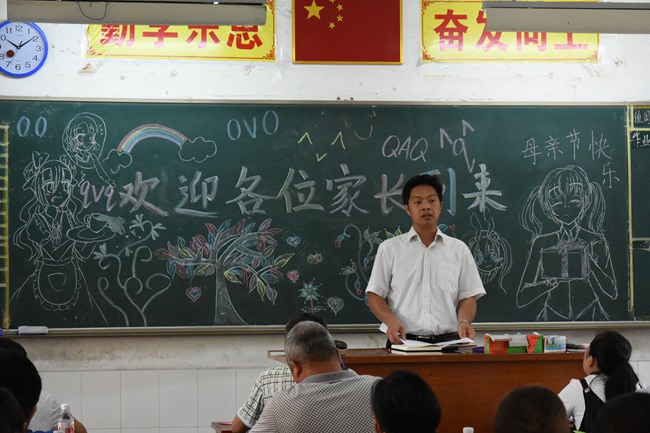 勤学求思
奋发向上
OVO
QAQ
qvq
欢迎各位家长到来
母亲节快乐